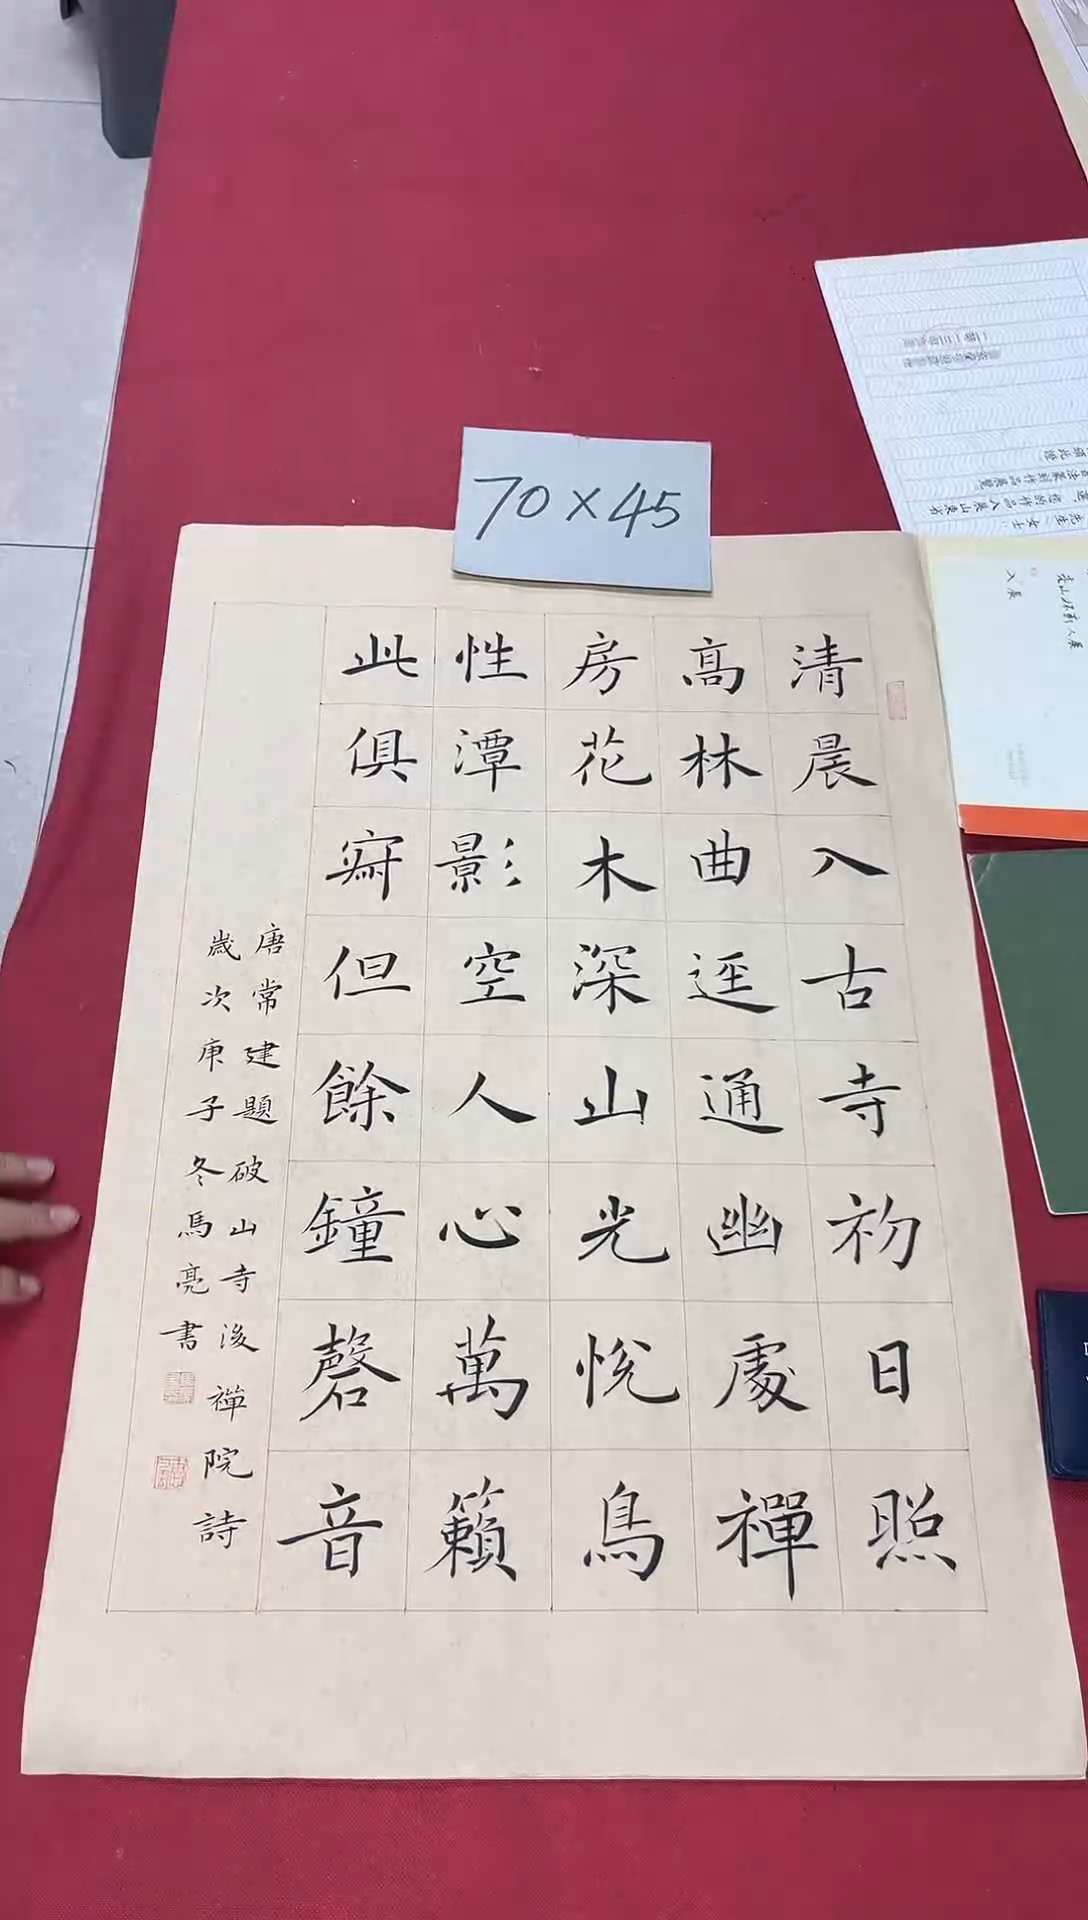 70×45
清晨入古寺初日照
高林曲逕通幽處禪
房花木深山光悅鳥
性潭影空人心萬籟
此俱寂但餘鐘磬音
唐常建題破山寺後禪院詩
歲次庚子冬馬亮書
入展